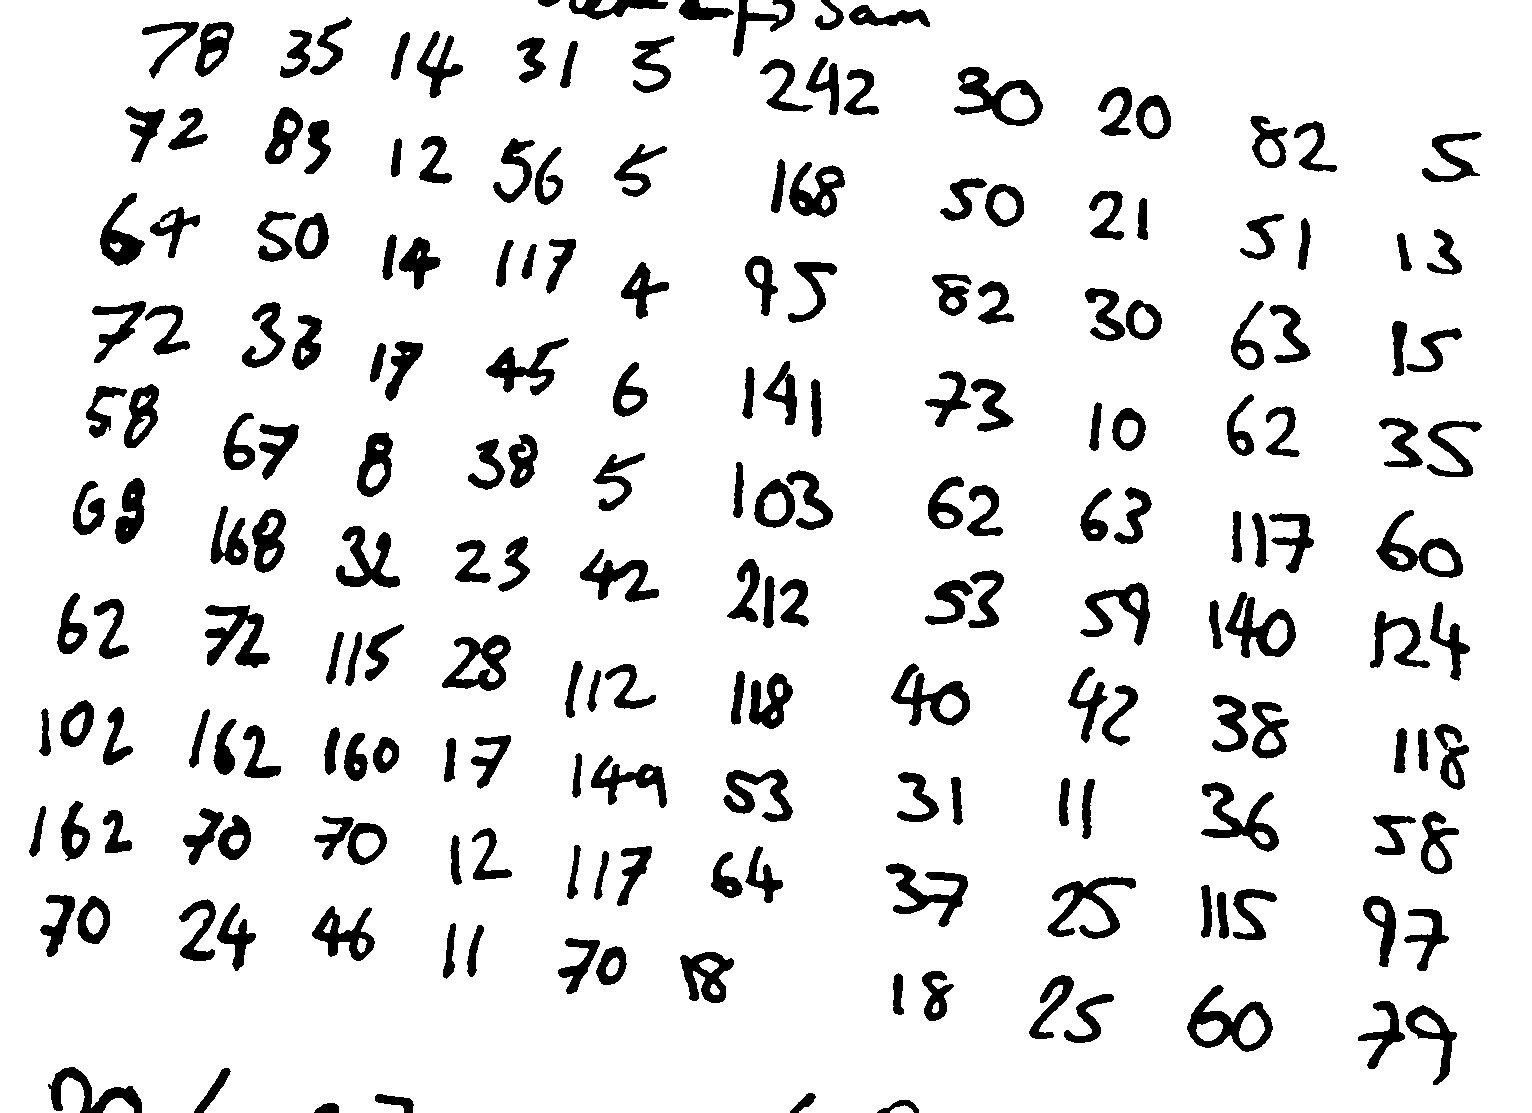 Sam
78 35 14 31 5 242 30 20 82 5
72 83 12 56 5 168 50 21 51 13
64 50 14 117 4 95 82 30 63 15
72 33 17 45 6 141 73 10 62 35
58 67 8 38 5 103 62 63 117 60
69 168 32 23 42 212 53 59 140 124
62 72 115 28 112 118 40 42 38 118
102 162 160 17 149 53 31 11 36 58
162 70 70 12 117 64 37 25 115 97
70 24 46 11 70 18 18 25 60 79